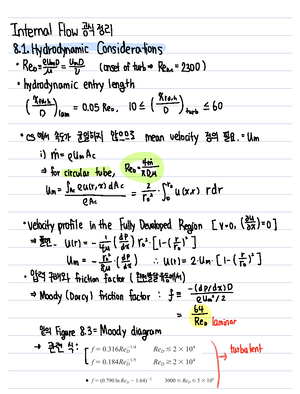 Internal Flow 공식 정리
8.1. Hydrodynamic Considerations
• Re_D = ρu_mD/μ = u_mD/ν (onset of turb ⇒ Re_D,c = 2300)
• hydrodynamic entry length
(x_fd,h/D)_lam = 0.05 Re_D, 10 ≤ (x_fd,h/D)_turb ≤ 60
• CS에서 속도가 균일하지 않으므로 mean velocity 정의 필요. = u_m
i) ṁ = ρu_mA_c
⇒ for circular tube, Re_D = 4ṁ/πDμ
u_m = ∫_Ac ρu(r,x)dA_c / ρA_c = 2/r_o² · ∫_0^r_o u(r,x) r dr
• velocity profile in the Fully Developed Region [v=0, (∂u/∂x)=0]
⇒ u(r) = -1/4μ (dp/dx) r_o² · [1-(r/r_o)²]
u_m = -r_o²/8μ (dp/dx) ∴ u(r) = 2·u_m·[1-(r/r_o)²]
• 압력 구배와 friction factor (완전발달유동에서)
⇒ Moody (Darcy) friction factor : f ≡ -(dp/dx)D / ρu_m²/2
= 64/Re_D laminar
Figure 8.3 = Moody diagram
→ 관련 식:
f = 0.316Re_D^-1/4 Re_D ≲ 2 × 10⁴
f = 0.184Re_D^-1/5 Re_D ≳ 2 × 10⁴
→ turbulent
• f = (0.790 ln Re_D − 1.64)^-2 3000 ≲ Re_D ≲ 5 × 10⁶